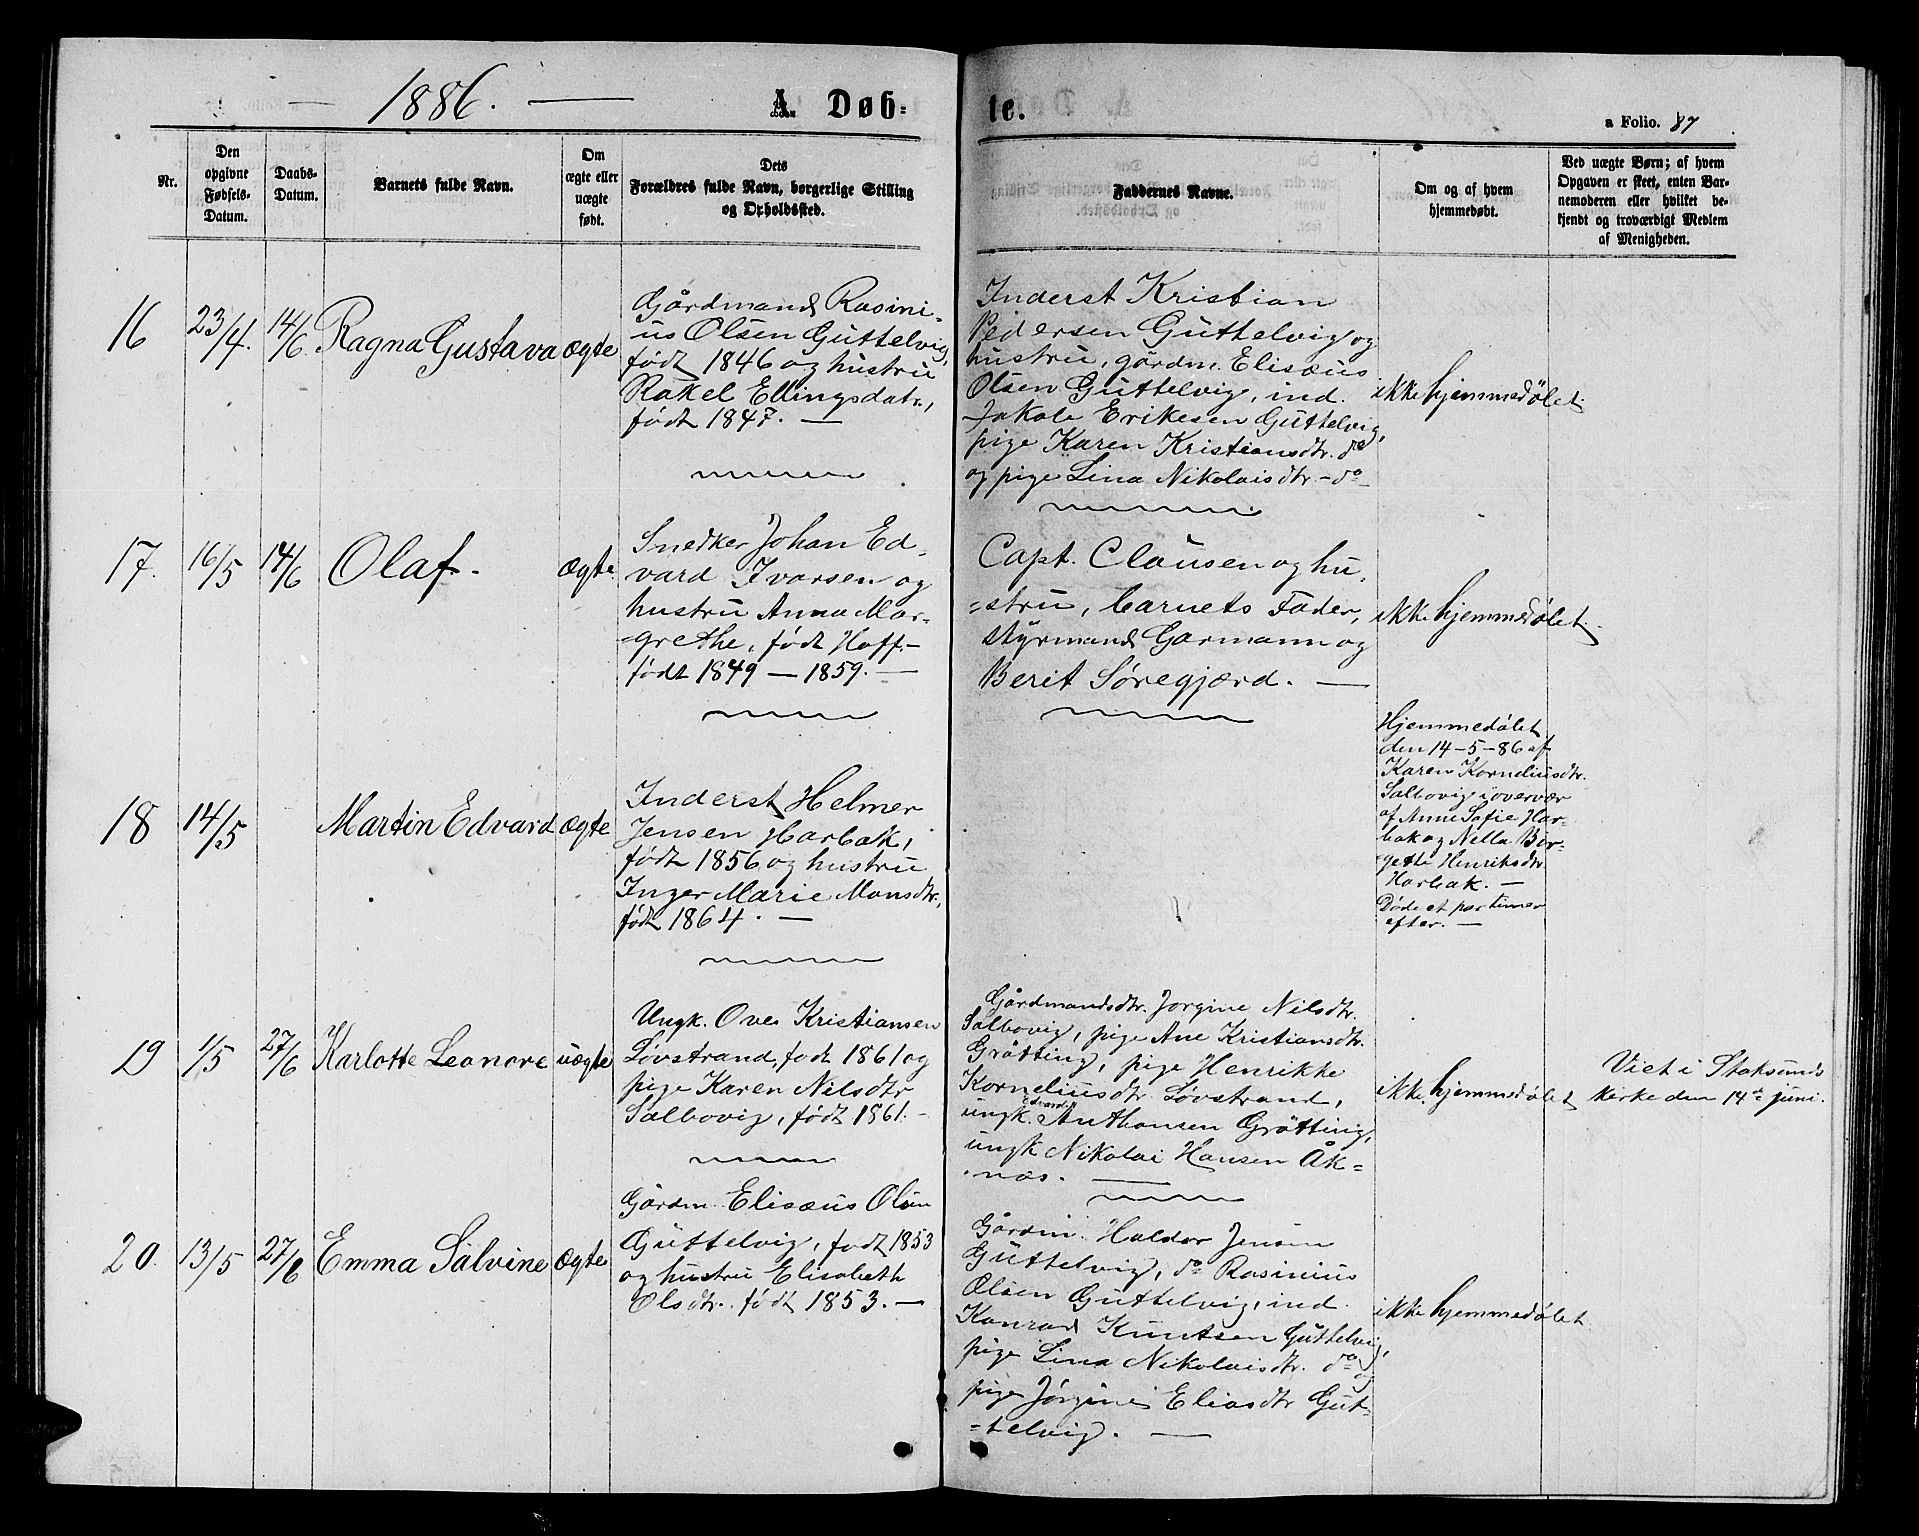 1886.
A. Døb-
te.
a Folio. 87
Nr.
Den opgivne Fødsels-Datum.
Daabs-Datum.
Barnets fulde Navn.
Om ægte eller uægte født.
Dets Forældres fulde Navn, borgerlige Stilling og Opholdssted.
Faddernes Navne.
Om og af hvem hjemmedøbt.
Ved uægte Børn; af hvem Opgaven er skeet, enten Barnemoderen eller hvilket bekjendt og troværdigt Medlem af Menigheden.
16
23/4.
14/6
Ragna Gustava
ægte
Gårdmand Rasini-
us Olsen Guttelvig,
født 1846 og hustru
Rakel Ellingsdatr.,
født 1847. —
Inderst Kristian
Pedersen Guttelvig og
hustru, gårdm. Elisæus
Olsen Guttelvig, ind.
Jakob Eriksen Guttelvig,
pige Karen Kristiansdtr. do
og pige Lina Nikolaisdtr – do
ikke hjemmedöbt.
17.
16/5
14/6
Olaf.
ægte
Snedker Johan Ed-
vard Ivarsen og
hustru Anna Mar-
-grethe, født Hoff.-
født 1849 — 1859. —
Capt. Clausen og hu-
-stru, barnets Fader,
styrmand Garmann og
Berit Søregjærd. —
ikke hjemmedöbt.
18
14/5
Martin Edvard
ægte
Inderst Helmer
Jensen Harbak,
født 1856 og hustru
Inger Marie Monsdtr,
født 1864. —
Hjemmedöbt
den 14-5-86 af
Karen Korneliusdtr.
Salbovig i overvær
af Anne Sofie Har-
bak og Nella Bor-
gette Henriksdtr.
Harbak. —
Døde et par timer
efter. —
19
1/5
27/6
Karlotte Leonore
uægte
Ungk. Ove Kristiansen
Lövstrand, født 1861 og
pige Karen Nilsdtr
Salbovig, født 1861. –
Gårdmandsdtr. Jorgine Nilsdtr.
Salbovig, pige Ane Kristiansdtr.
Grötting, pige Henrikke
Korneliusdtr Lövstrand,
ungk. Edvard Anthonsen Grötting,
ungk Nikolai Hansen Åk-
næs. —
ikke hjemmedöbt
Viet i Stoksunds
kirke den 14de juni.
20.
13/5
27/6
Emma Salvine
ægte
Gårdm. Elisæus Olsen
Guttelvig, født 1853
og hustru Elisabeth
Olsdtr. født 1853. —
Gårdm. Haldor Jensen
Guttelvig, do Rasinius
Olsen Guttelvig, ind.
Konrad Knutsen Guttelvig,
pige Lina Nikolaisdtr. do og
pige Jörgine Eliasdtr Gut-
-telvig. —
ikke hjemmedöbt.